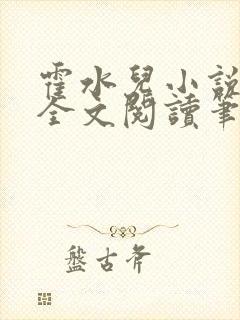 霍水兒小說
全文閱讀筆
盤古斧